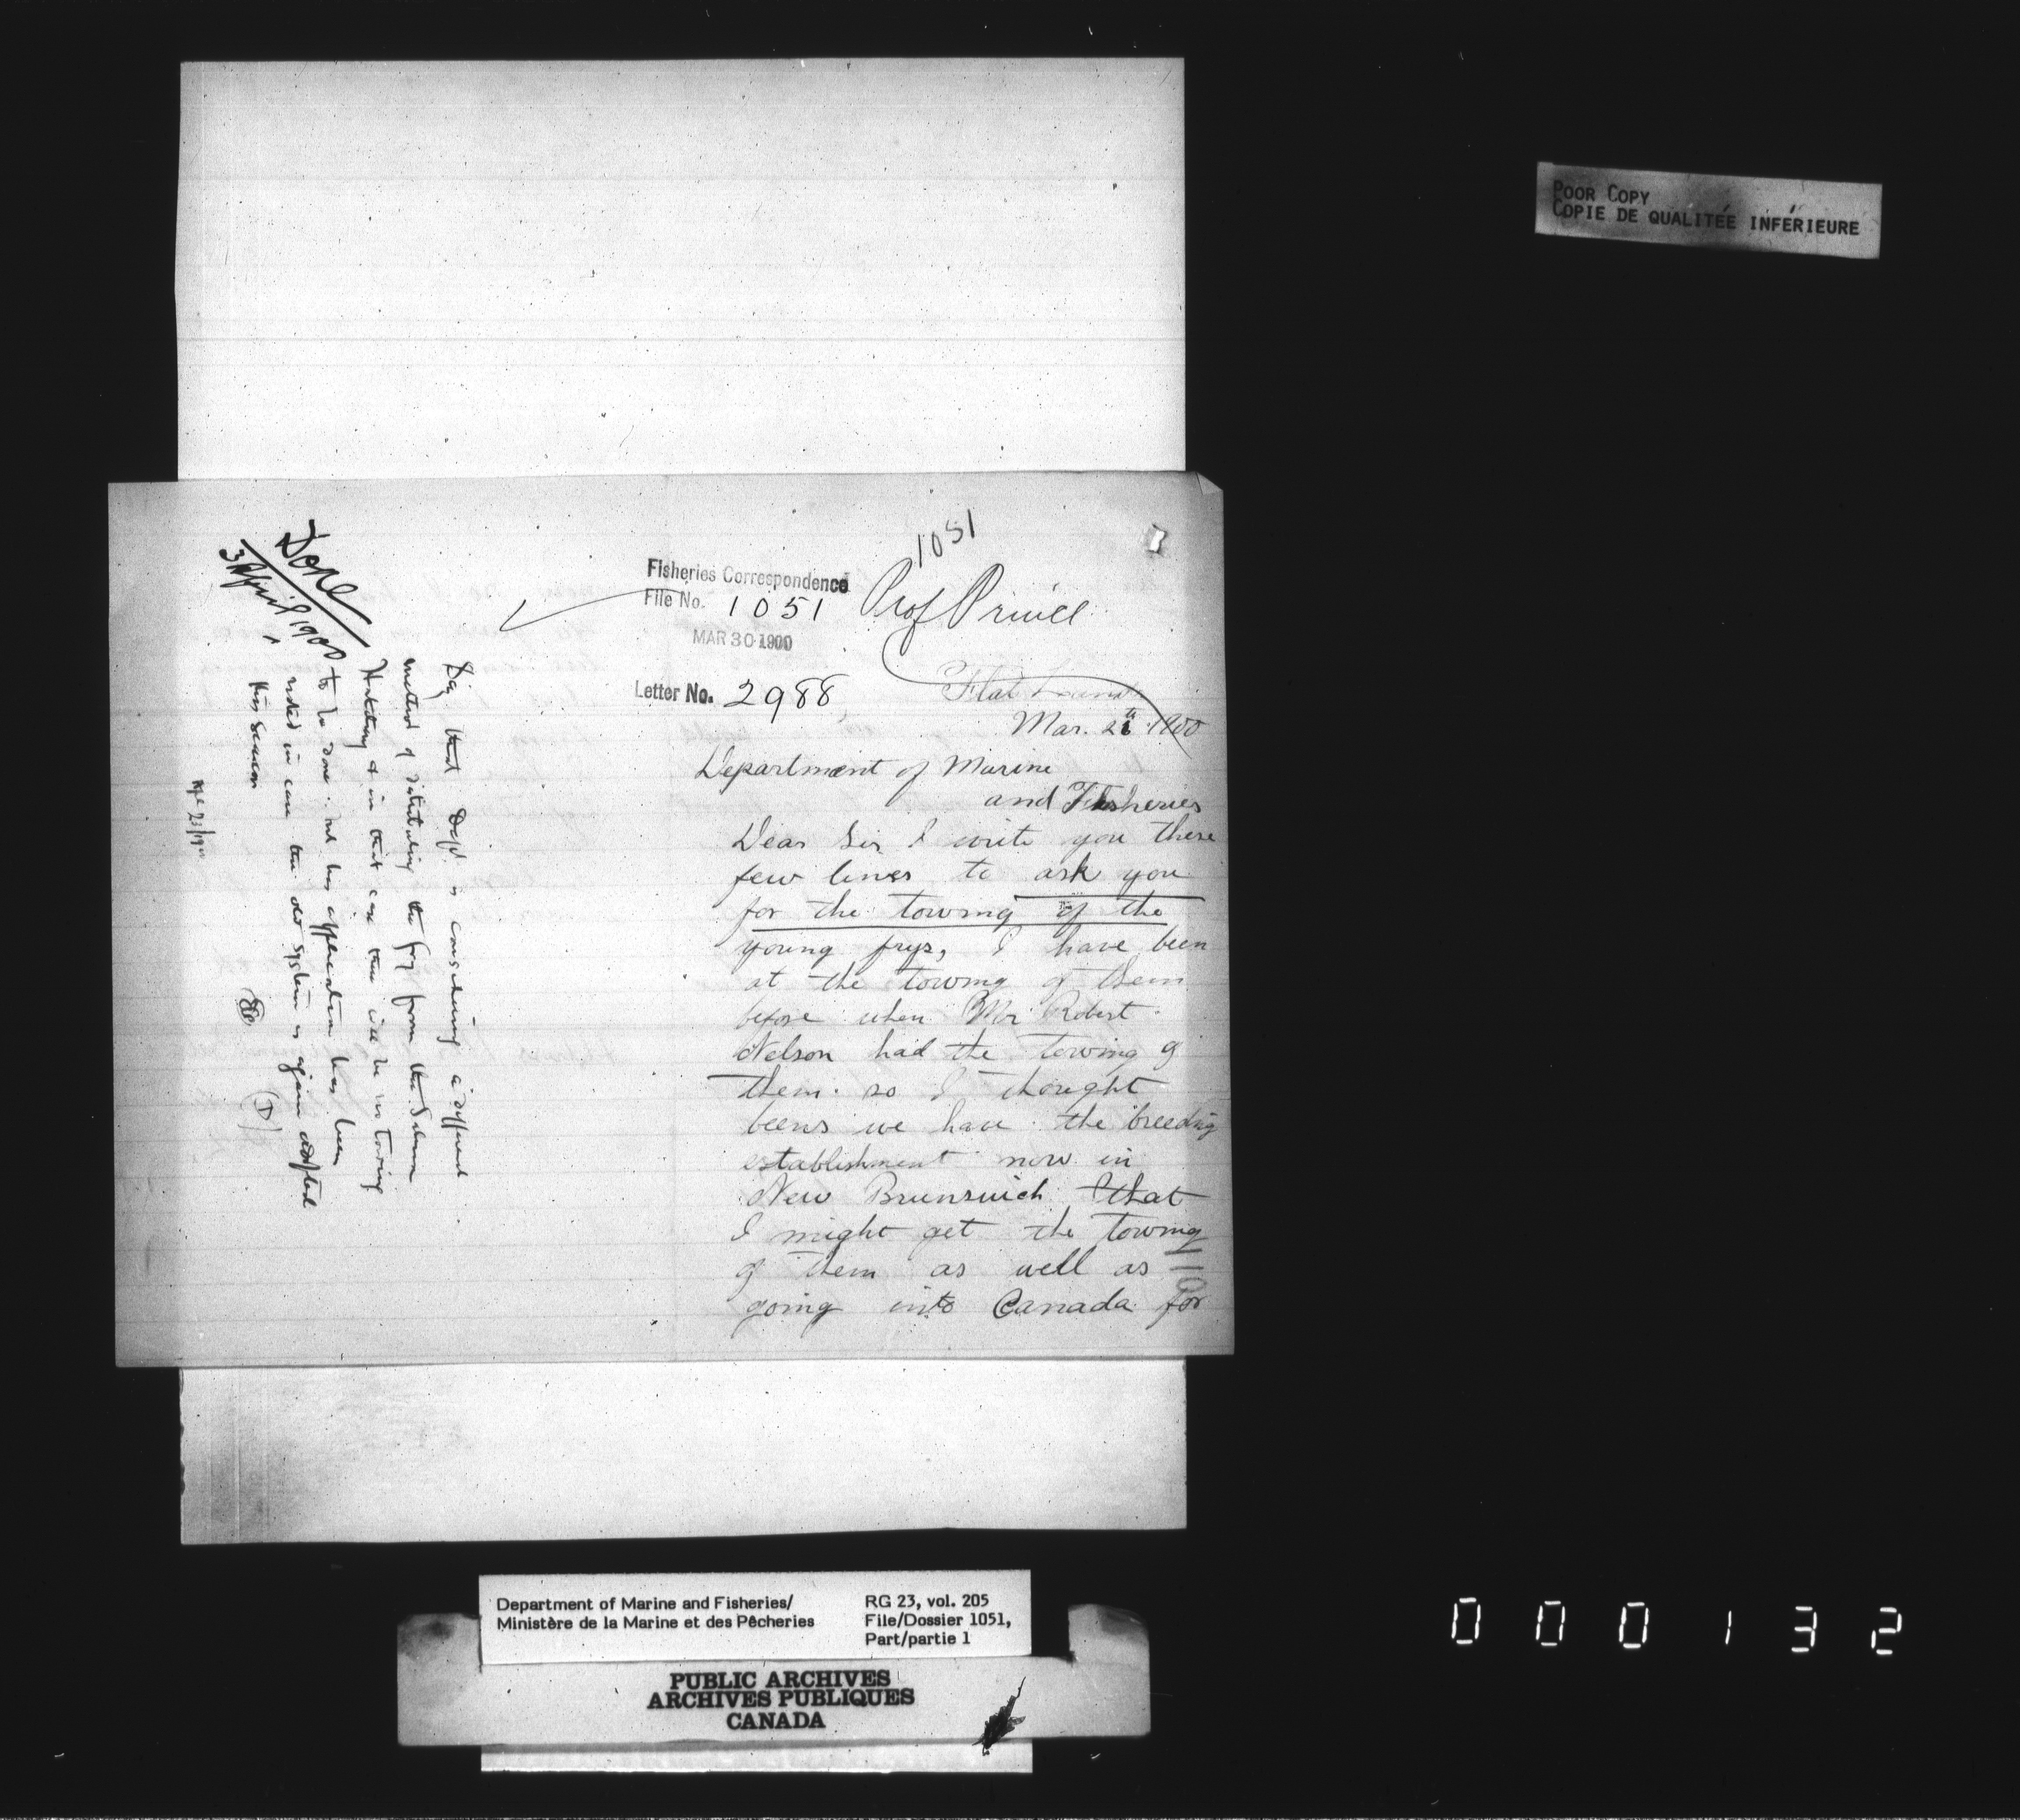 POOR COPY
COPIE DE QUALITÉE INFÉRIEURE
1051
Fisheries Correspondence
File No. 1051
MAR 30 1900
Letter No. 2988
Prof Prince
Flat Lands
Mar. 1900
Department of Marine
and Fisheries
Dear Sir I write you these
few lines to ask you
for the towing of the
young frys, I have been
at the towing of them
before when Mr Robert
Nelson had the towing of
them. so I thought
beens we have the breeding
establishment now in
New Brunswich that
I might get the towing
of them as well as
going into Canada for
110
Done
3 April 1900
Say that Dept is considering a different
method of distributing the fry from the Salmon
Hatchery & in that case there will be no towing
to be done. but his application has been
noted in case the old system is again adopted
this season
Department of Marine and Fisheries/
Ministère de la Marine et des Pêcheries
RG 23, vol. 205
File/Dossier 1051,
Part/partie 1
PUBLIC ARCHIVES
ARCHIVES PUBLIQUES
CANADA
000132